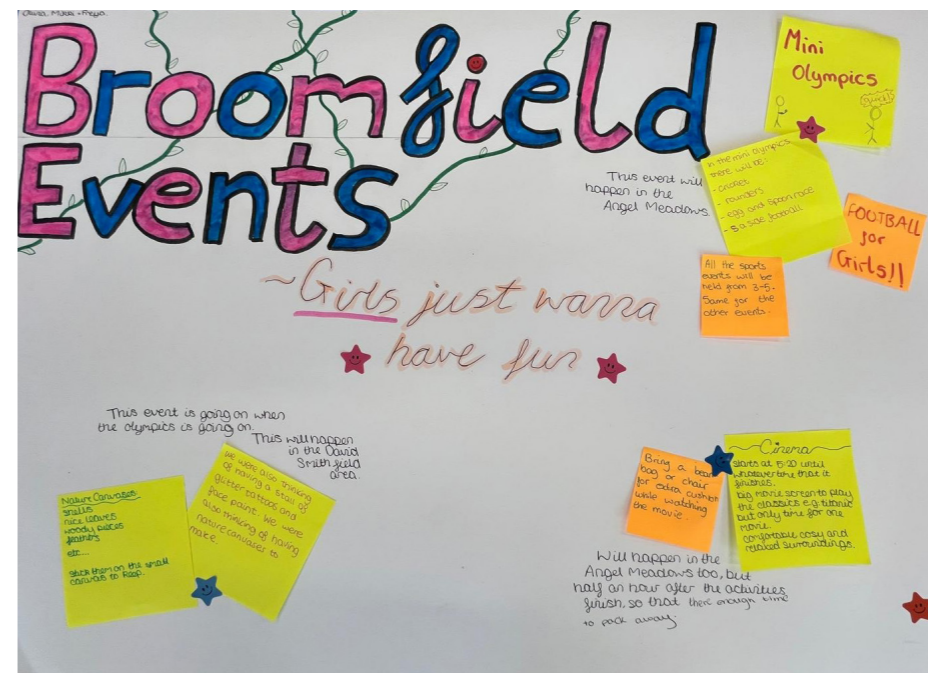 Broomfield
Events
Mini
Olympics
quick!
This event will
happen in the
Angel Meadows.
In the mini olympics
there will be:
- cricket
- rounders
- egg and spoon race
- 5 a side football
FOOTBALL
for
Girls!!
All the sports
events will be
held from 3-5.
Same for the
other events.
~Girls just wanna
have fun
This event is going on when
the olympics is going on.
This will happen
in the David
Smith field
area.
Nature Canvases
shells
nice leaves
woody pieces
feathers
etc...
Stick them on the small
canvas to keep.
We were also thinking
of having a stall of
glitter tattoos and
face paint. We were
also thinking of having
nature canvases to
make.
Bring a bean
bag or chair
for extra cushion
while watching
the movie.
Cinema
starts at 5:20 until
whatever time that it
finishes.
big movie screen to play
the classics e.g. titanic
but only time for one
movie.
comfortable cosy and
relaxed surroundings.
Will happen in the
Angel Meadows too, but
half an hour after the activities
finish, so that there enough time
to pack away.